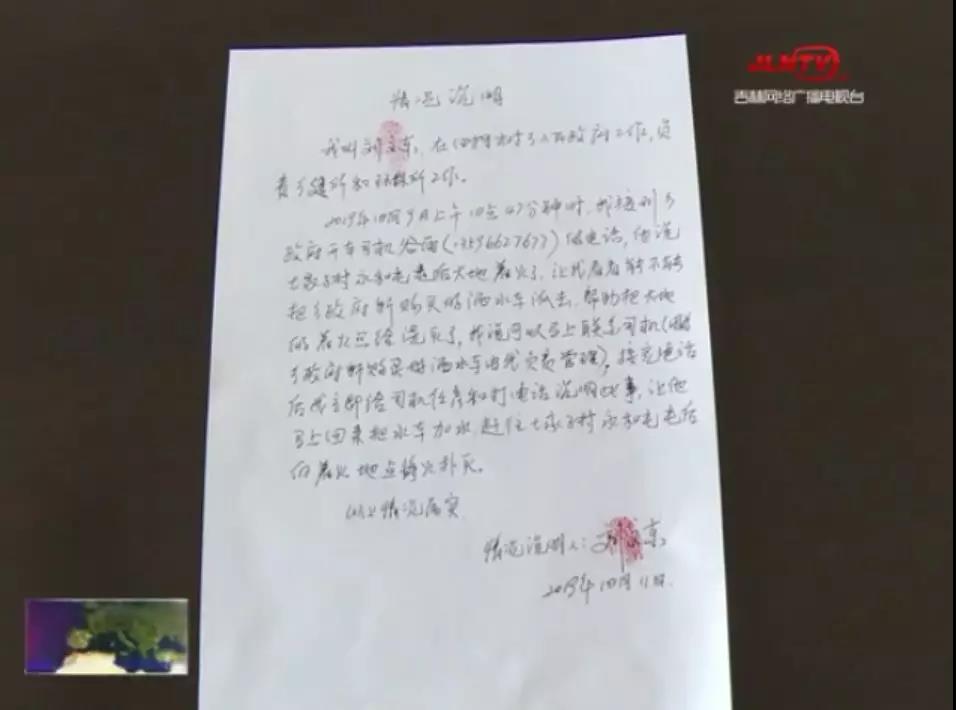 JLNTV
吉林网络广播电视台
情况说明
我叫刘 东,在 乡人民政府工作,负
责乡建所和 所工作。
2019年10月9日上午10点47分钟时,我接到乡
政府开车司机 (13596627677)做电话,他说
土家子村永和屯屯后大地着火了,让我看看能不能
把乡政府新购买的洒水车派去,帮助把大地
的着火点给浇灭了,我说可以马上联系司机(因为
乡政府新购买的洒水车由我负责管理),接完电话
后我立即给司机任彦和打电话说明此事,让他
马上回来把水车加水,赶往土家子村永和屯屯后
的着火地点将火扑灭。
以上情况属实
情况说明人:刘 东
2019年10月11日.